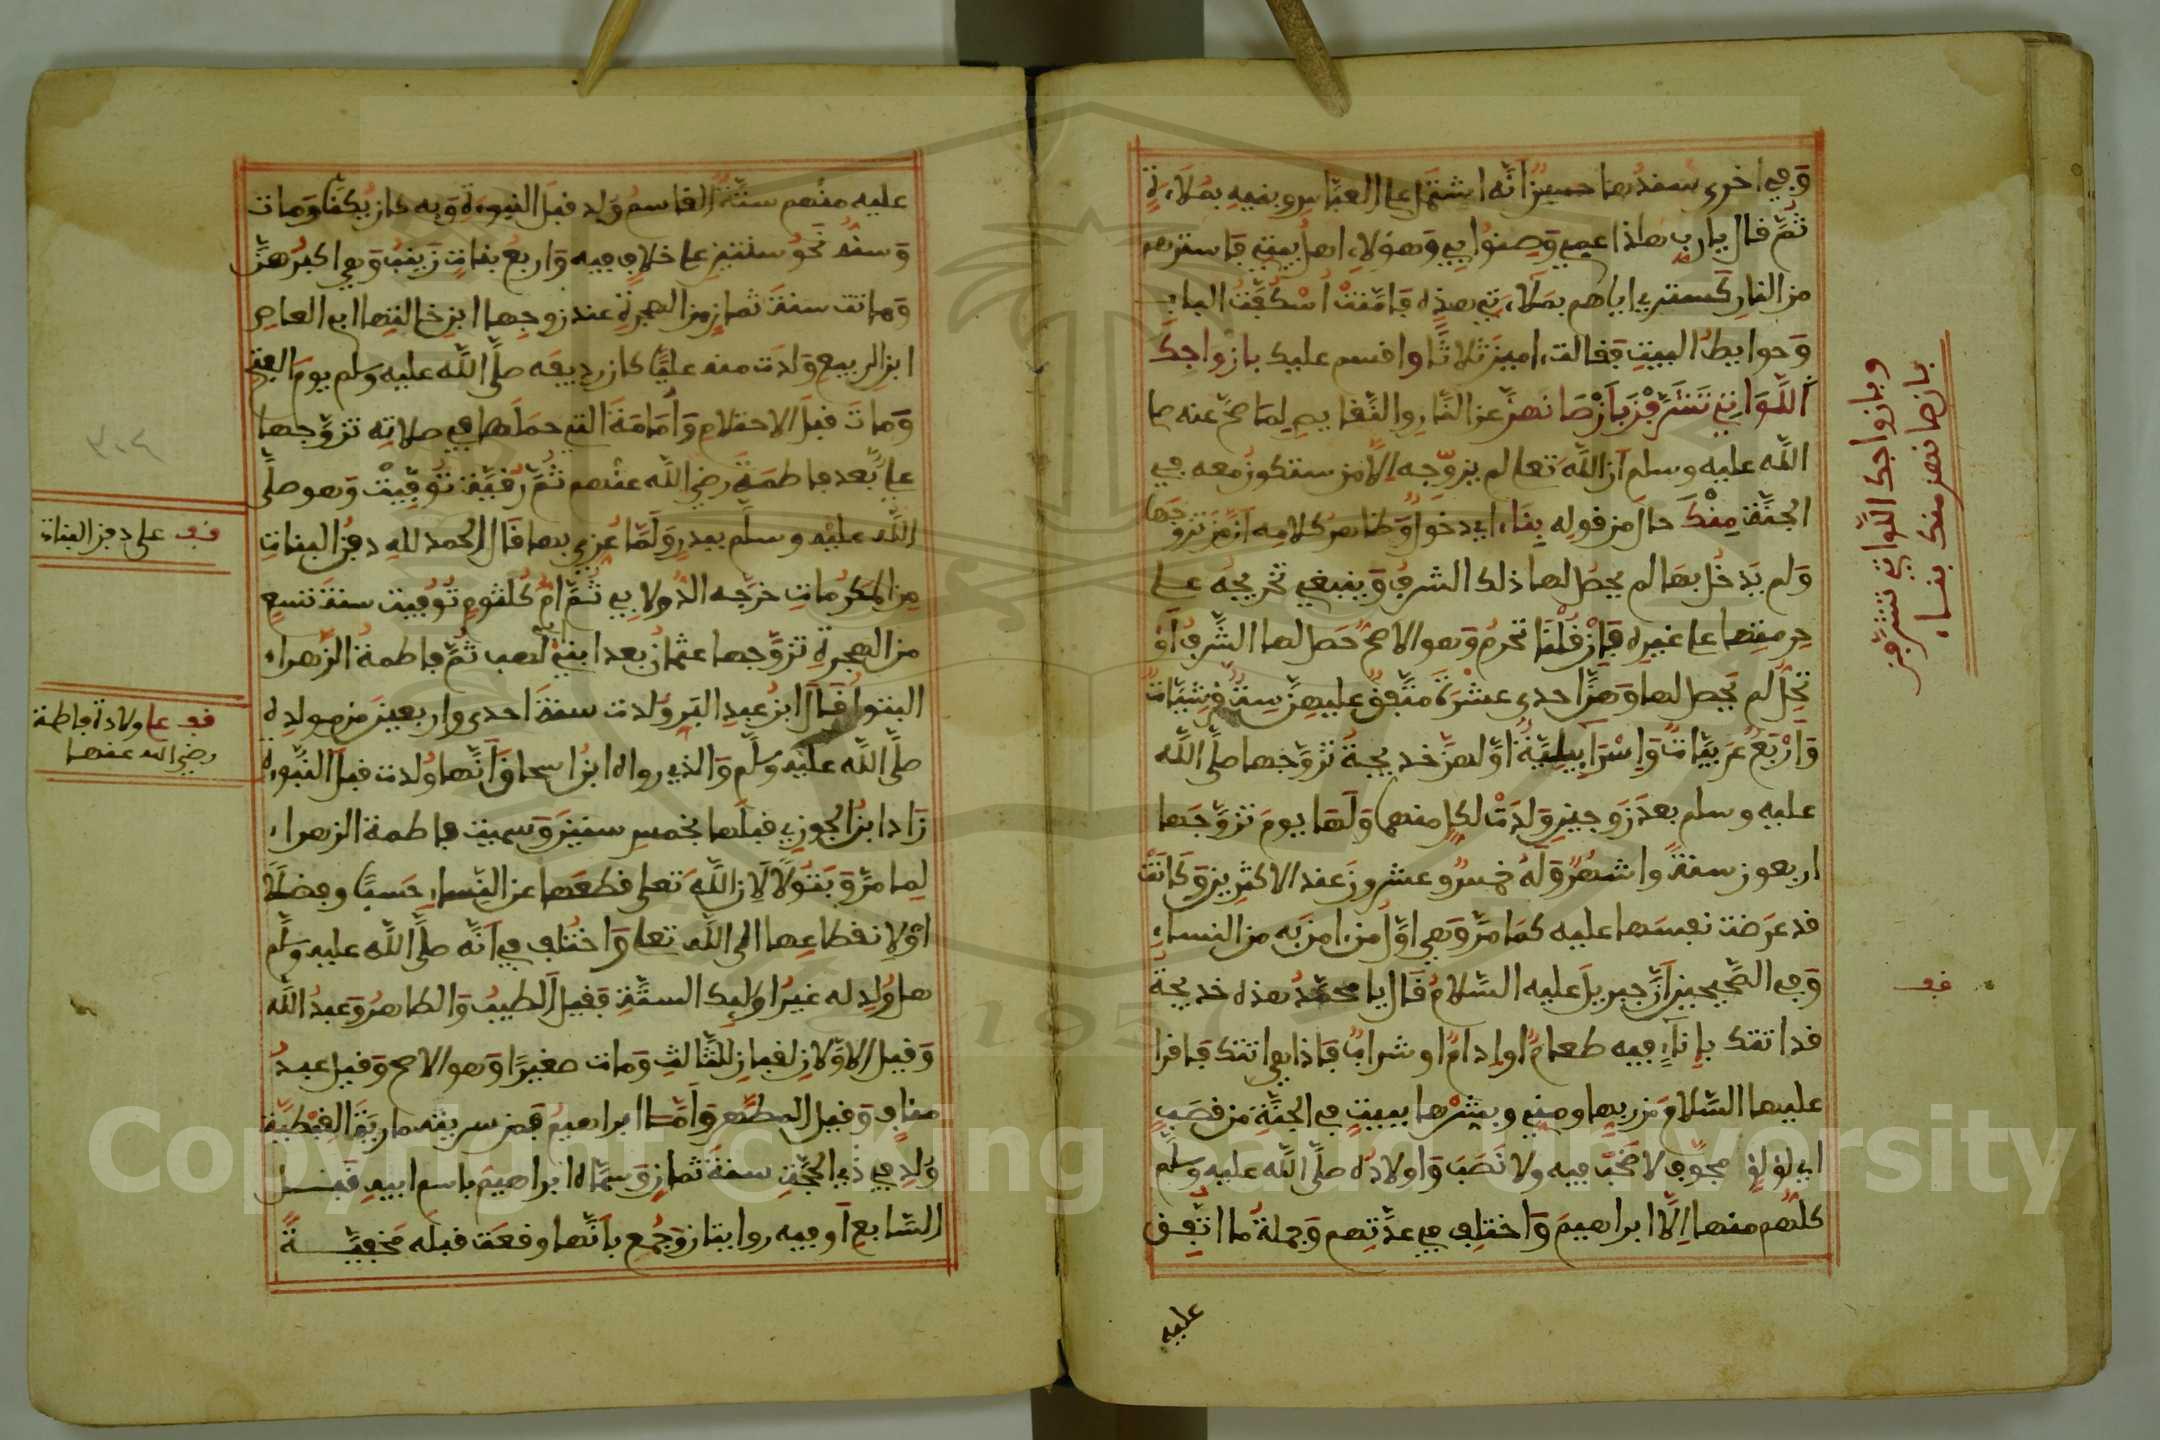 وفي اخرى سندها حسن انه اشتمل على العباس وبنيه بملاءة
ثم قال يا رب هاذا عمي وصنو ابي وهؤلاء اهل بيتي فاسترهم
من النار كستري اياهم بملاءتي هذه فامنت اسكفت الباب
وحوايط البيت فقالت امين ثلاثا واقسم عليك بازواجك
اللواتي تشرفن بان صانهن عن النار والنقايص لما صح عنه صلى
الله عليه وسلم ان الله تعالى لم يزوجه الا من ستكون معه في
الجنة منك حال من قوله بناء اي دخول وظاهر كلامه ان من تزوجها
ولم يدخل بها لم يحصل لها ذلك الشرف وينبغي تخريجه على
حرمتها على غيره فان قلنا تحرم وهو الاصح حصل لها الشرف او
تحل لم يحصل لها وهن احدى عشرة متفق عليهن ست قرشيات
واربع عربيات واسرايلية اولهن خديجة تزوجها صلى الله
عليه وسلم بعد زوجين ولدت لكل منهما ولها يوم تزوجها
اربعون سنة واشهر وله خمس وعشرون عند الاكثرين وكانت
قد عرضت نفسها عليه كما مر وهي اول من امن به من النساء
وفي الصحيحين ان جبريل عليه السلام قال يا محمد هذه خديجة
قد اتتك باناء فيه طعام او ادام او شراب فاذا هي اتتك فاقرا
عليها السلام من ربها ومني وبشرها ببيت في الجنة من قصب
اي لؤلؤ مجوف لا صخب فيه ولا نصب واولاده صلى الله عليه وسلم
كلهم منها الا ابراهيم واختلف في عدتهم وجملة ما اتفق
عليه
وبازواجك اللواتي تشرفن
بان صانهن منك بناء
قف
عليه منهم ستة القاسم ولد قبل النبوءة وبه كان يكنا ومات
وسنه نحو سنتين على خلاف فيه واربع بنات زينب وهي اكبرهن
وماتت سنة ثمان من الهجرة عند زوجها ابن خالتها ابي العاص
ابن الربيع ولدت منه عليا كان رديفه صلى الله عليه وسلم يوم الفتح
ومات قبل الاحتلام وامامة التي حملها في صلاته تزوجها
علي بعد فاطمة رضي الله عنهم ثم رقية توفيت وهو صلى
الله عليه وسلم ببدر ولما عزي بها قال الحمد لله دفن البنات
من المكرمات خرجه الدولابي ثم ام كلثوم توفيت سنة تسع
من الهجرة تزوجها عثمان بعد ابني لهب ثم فاطمة الزهراء
البتول قال ابن عبد البر ولدت سنة احدى واربعين من مولده
صلى الله عليه وسلم والذي رواه ابن اسحاق انها ولدت قبل النبوءة
زاد ابن الجوزي قبلها بخمس سنين وسميت فاطمة الزهراء
لما مر وبتولا لان الله تعلى قطعها عن النساء حسبا وفضلا
او لانقطاعها الى الله تعلى واختلف في انه صلى الله عليه وسلم
هل ولد له غير اوليك الستة فقيل الطيب والطاهر وعبد الله
وقيل الاولان لقبان للثالث ومات صغيرا وهو الاصح وقيل عبد
مناف وقيل المطهر واما ابراهيم فمن سريته مارية القبطية
ولد في ذي الحجة سنة ثمان وسماه ابراهيم باسم ابيه قبل
السابع او فيه روايتان وجمع بانها وقعت قبله مخفية
قف على دفن البنات
قف على ولادة فاطمة
رضي الله عنها
Copyright © King Saud University
1957